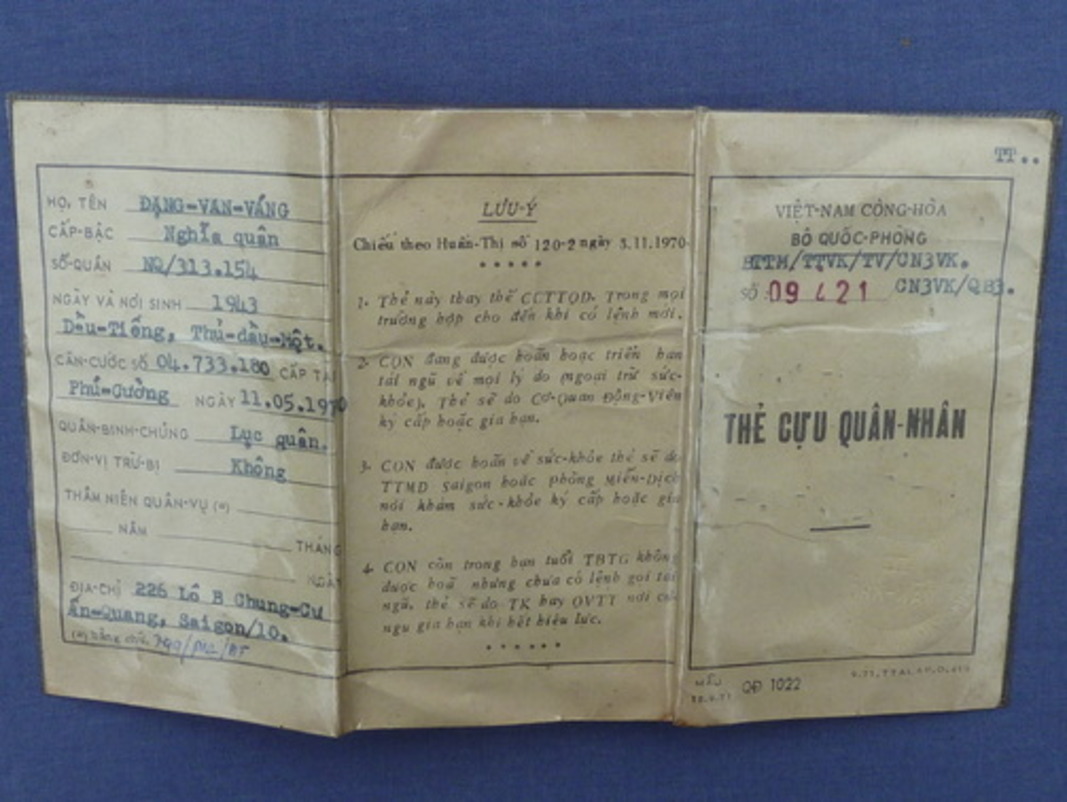 HỌ, TÊN ĐẶNG-VAN-VÁNG
CẤP-BẬC Nghĩa quân
SỐ-QUÂN NQ/313.154
NGÀY VÀ NƠI SINH 1943
Dầu-Tiếng, Thủ-dầu-Một.
CĂN-CƯỚC SỐ 04.733.180 CẤP TẠI
Phú-Cường NGÀY 11.05.1970
QUÂN-BINH-CHỦNG Lục quân.
ĐƠN-VỊ TRỪ-BỊ Không
THÂM NIÊN QUÂN-VỤ (*)
NĂM THÁNG
NGÀY
ĐỊA-CHỈ 226 Lô B Chung-Cư
Ấn-Quang, Saigon/10.
(*) bằng chữ.
LƯU-Ý
Chiếu theo Huấn-Thị số 120-2 ngày 3.11.1970
* * * * *
1- Thẻ này thay thế CCTTQD. Trong mọi
trường hợp cho đến khi có lệnh mới.
2- CQN đang được hoãn hoặc triển hạn
tái ngũ về mọi lý do (ngoại trừ sức-
khỏe). Thẻ sẽ do Cơ-Quan Động-Viên
ký cấp hoặc gia hạn.
3- CQN được hoãn về sức-khỏe thẻ sẽ do
TTMD Saigon hoặc phòng Miễn-Dịch
nơi khám sức-khỏe ký cấp hoặc gia
hạn.
4- CQN còn trong hạn tuổi TBTG không
được hoãn nhưng chưa có lệnh gọi tái
ngũ, thẻ sẽ do TK hay QVTT nơi cư
ngụ gia hạn khi hết hiệu lực.
* * * * * *
TT..
VIỆT-NAM CỘNG-HÒA
BỘ QUỐC-PHÒNG
BTTM/TTVK/TV/CN3VK.
SỐ : 09421 CN3VK/QB3.
THẺ CỰU QUÂN-NHÂN
MẪU QĐ 1022